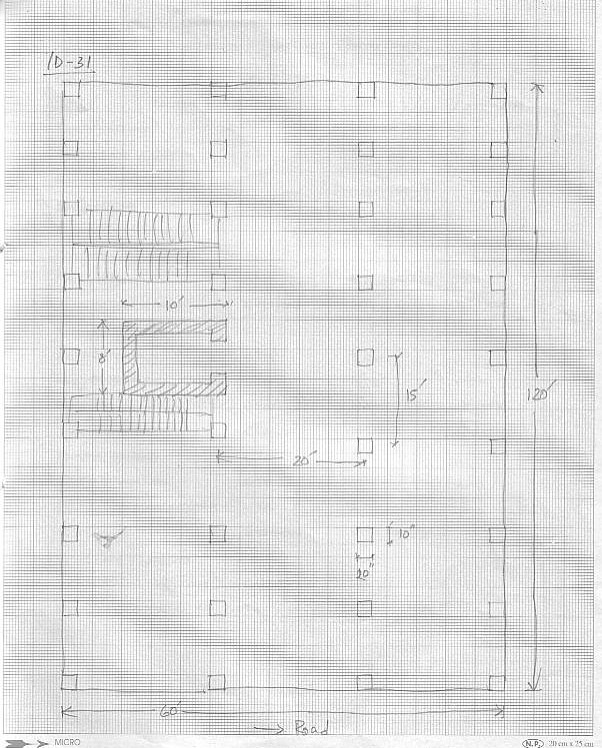 ID-31
10'
8'
15'
120'
20'
10"
20"
60'
→ Road
MICRO
N.P. 20 cm x 25 cm